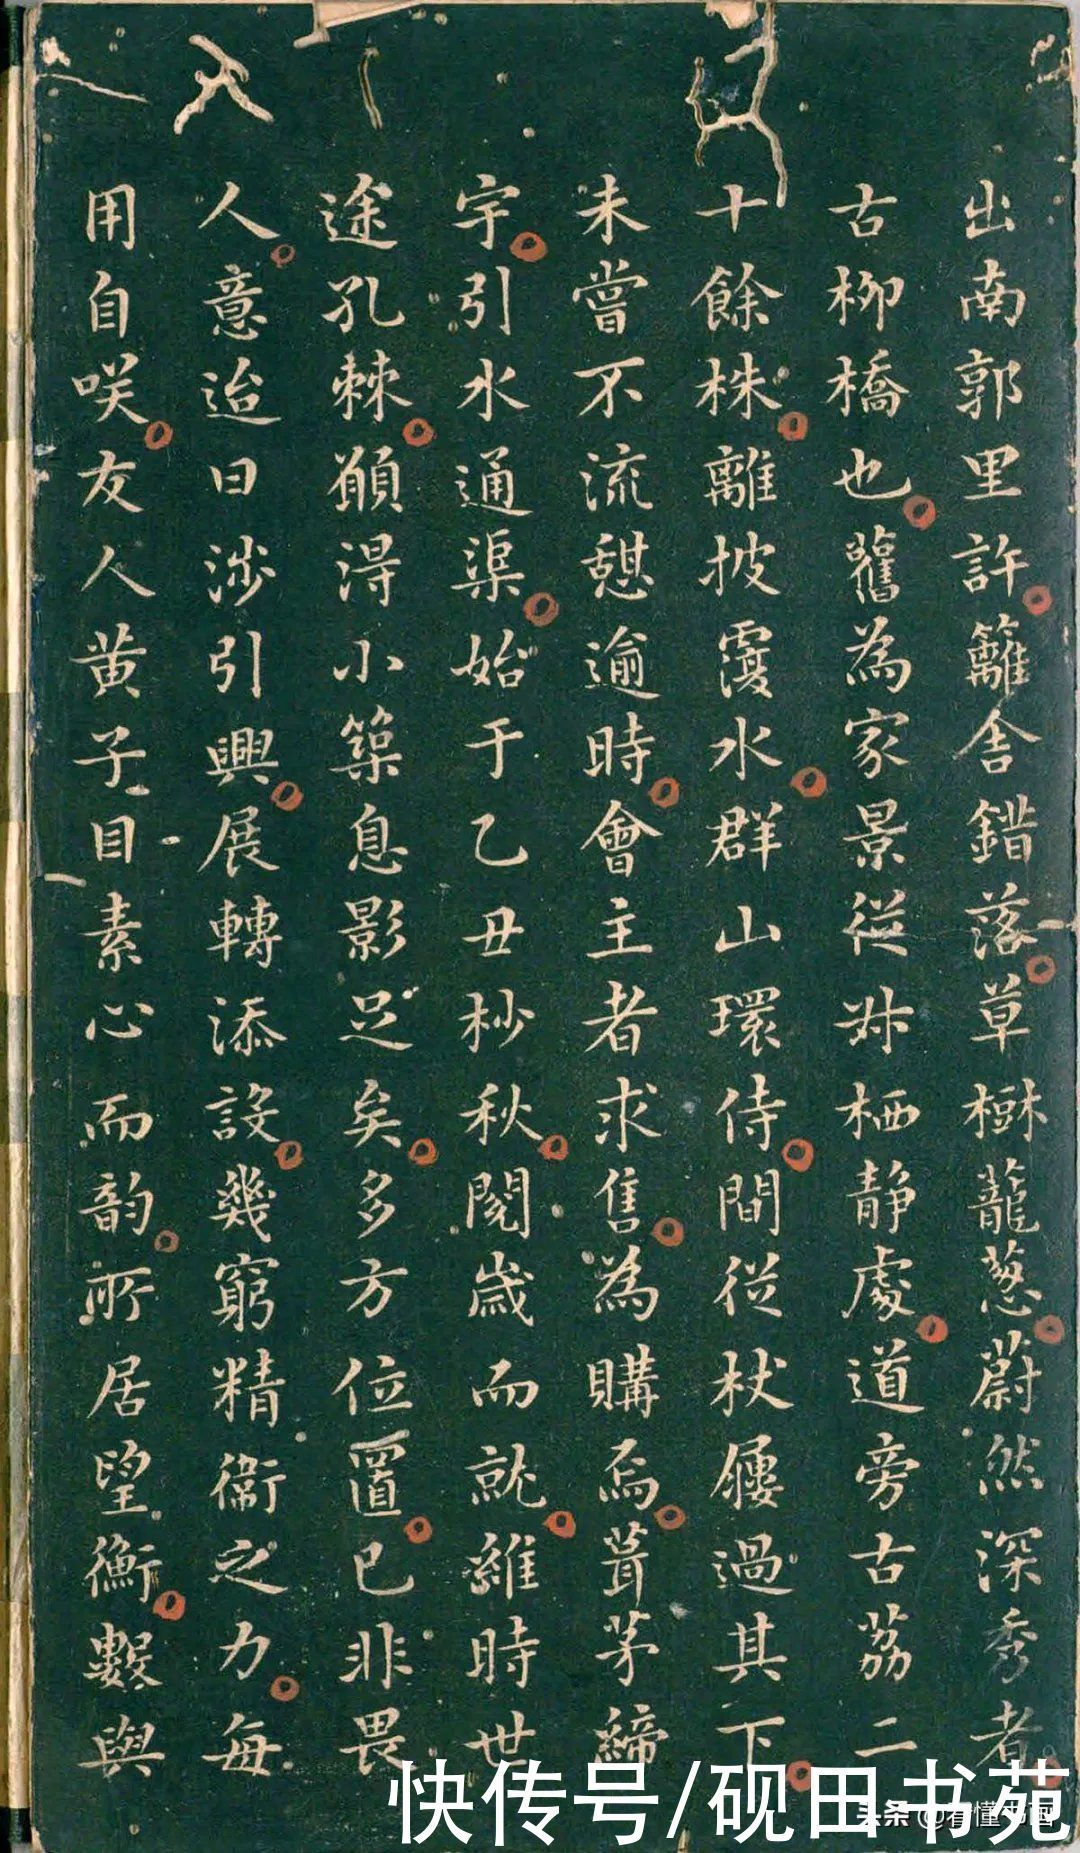 出南郭里許籬舍錯落草樹蘢蔥蔚然深秀者
古柳橋也舊為家景從叔栖靜處道旁古荔二
十餘株離披覆水群山環侍間從杖屨過其下
未嘗不流憩逾時會主者求售為購焉葺茅締
宇引水通渠始于乙丑杪秋閱歲而就維時世
途孔棘願得小築息影足矣多方位置已非畏
人意迨日涉引興展轉添設幾窮精衛之力每
用自咲友人黃子目素心而韵所居望衡數與
快传号/砚田书苑
头条@看懂书画